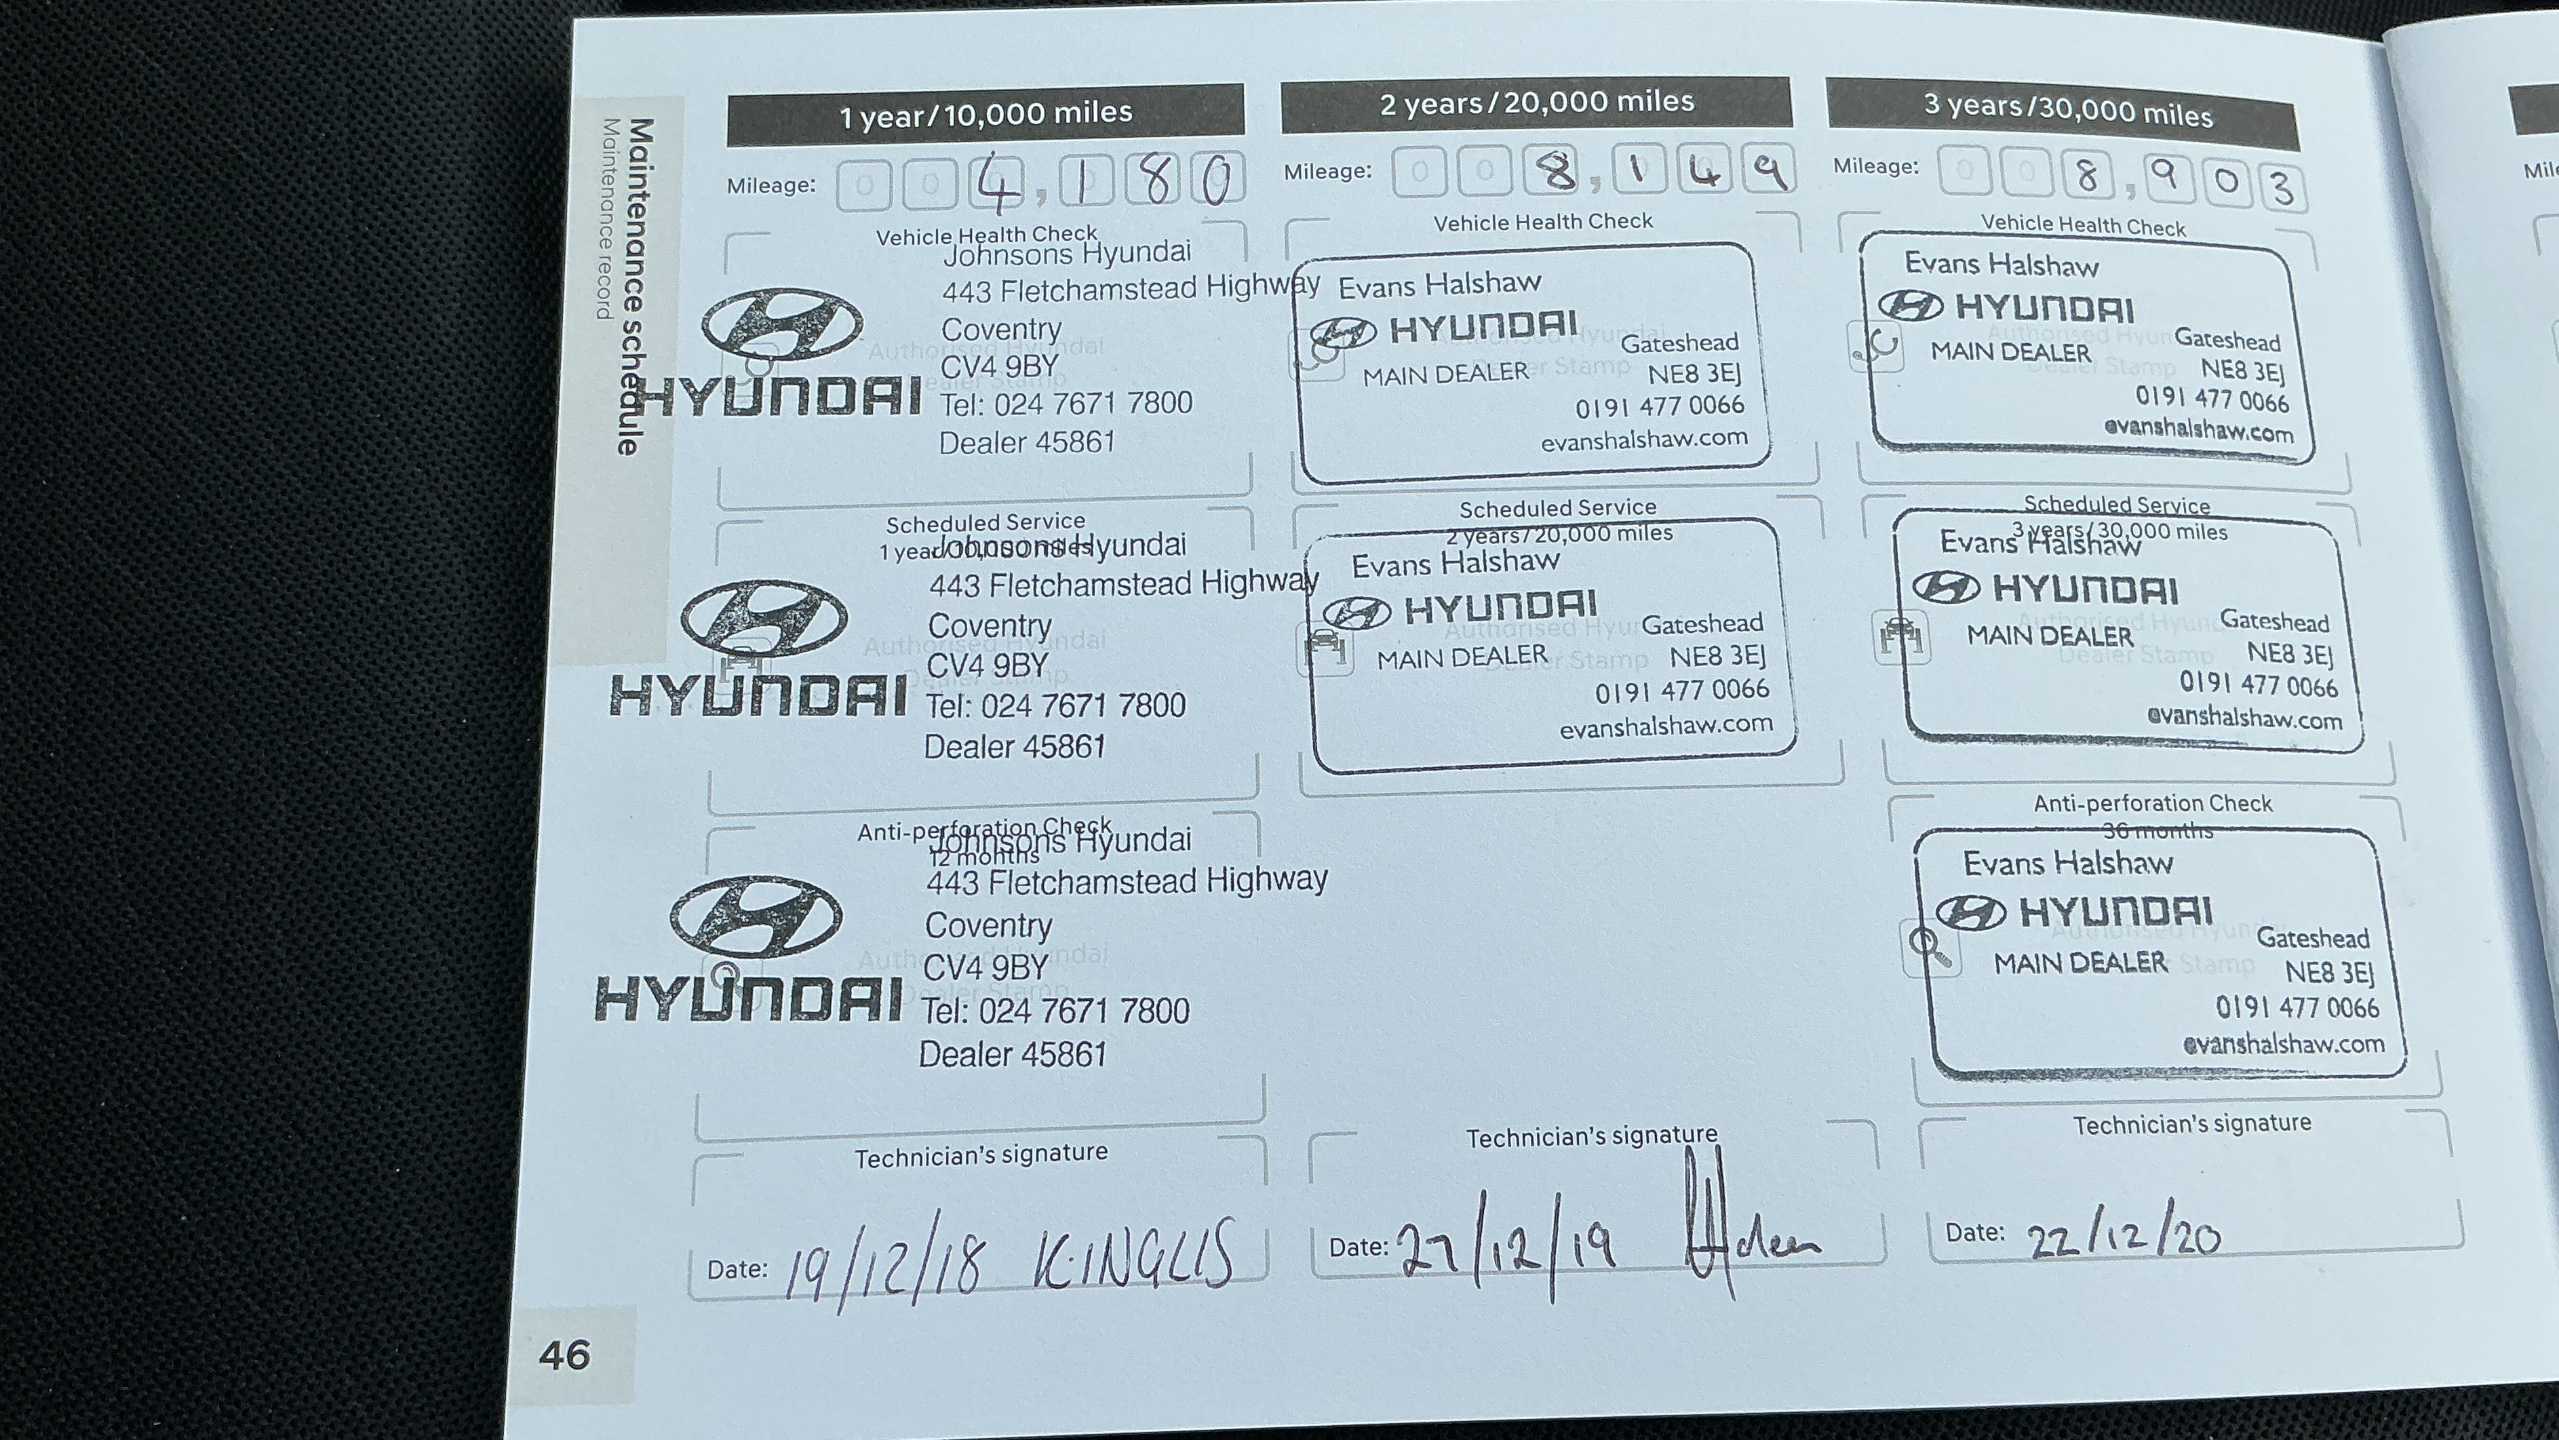 Maintenance schedule
Maintenance record
1 year/10,000 miles
Mileage: 0 0 4,180
Vehicle Health Check
Johnsons Hyundai
443 Fletchamstead Highway
Coventry
CV4 9BY
HYUNDAI
Tel: 024 7671 7800
Dealer 45861
Authorised Hyundai
Dealer Stamp
Scheduled Service
1 year/10,000 miles
Johnsons Hyundai
443 Fletchamstead Highway
Coventry
CV4 9BY
HYUNDAI
Tel: 024 7671 7800
Dealer 45861
Authorised Hyundai
Dealer Stamp
Anti-perforation Check
12 months
Johnsons Hyundai
443 Fletchamstead Highway
Coventry
CV4 9BY
HYUNDAI
Tel: 024 7671 7800
Dealer 45861
Authorised Hyundai
Dealer Stamp
Technician's signature
Date: 19/12/18 K·INGLIS
2 years/20,000 miles
Mileage: 0 0 8,149
Vehicle Health Check
Evans Halshaw
HYUNDAI
MAIN DEALER
Gateshead
NE8 3EJ
0191 477 0066
evanshalshaw.com
Authorised Hyundai
Dealer Stamp
Scheduled Service
2 years/20,000 miles
Evans Halshaw
HYUNDAI
MAIN DEALER
Gateshead
NE8 3EJ
0191 477 0066
evanshalshaw.com
Authorised Hyundai
Dealer Stamp
Technician's signature
Date: 27/12/19
3 years/30,000 miles
Mileage: 0 0 8,903
Vehicle Health Check
Evans Halshaw
HYUNDAI
MAIN DEALER
Gateshead
NE8 3EJ
0191 477 0066
evanshalshaw.com
Authorised Hyundai
Dealer Stamp
Scheduled Service
3 years/30,000 miles
Evans Halshaw
HYUNDAI
MAIN DEALER
Gateshead
NE8 3EJ
0191 477 0066
evanshalshaw.com
Authorised Hyundai
Dealer Stamp
Anti-perforation Check
36 months
Evans Halshaw
HYUNDAI
MAIN DEALER
Gateshead
NE8 3EJ
0191 477 0066
evanshalshaw.com
Authorised Hyundai
Dealer Stamp
Technician's signature
Date: 22/12/20
46